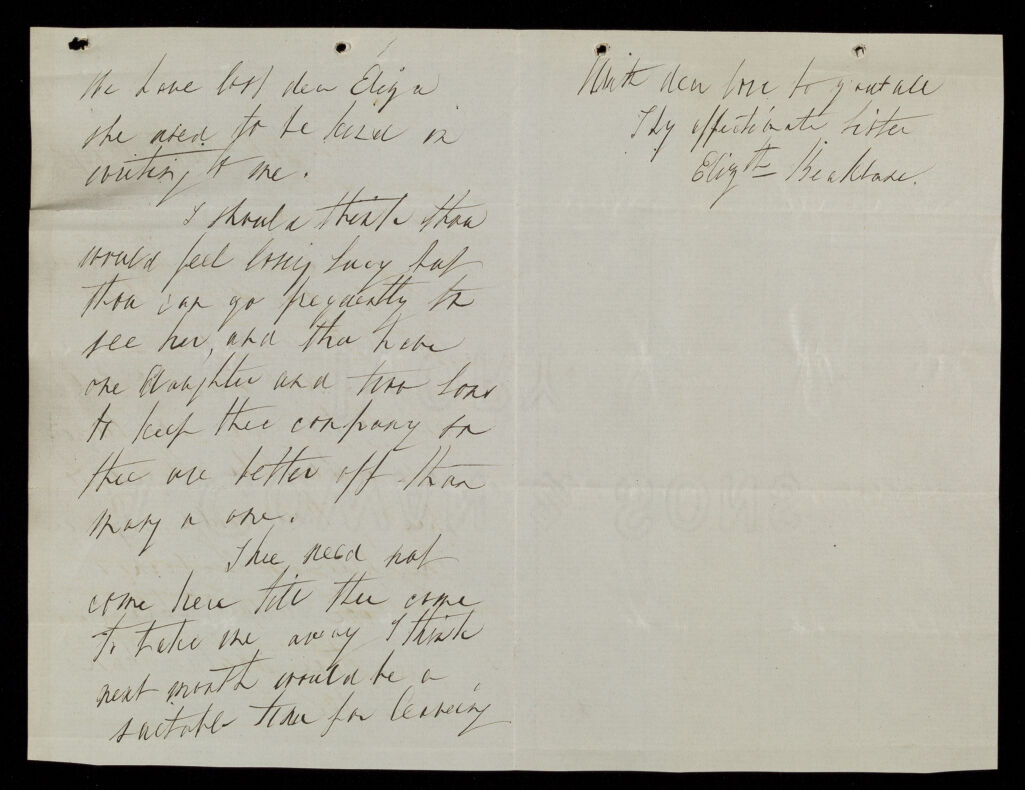 We have lost dear Eliza
she used to be kind in
writing to me.
I should think thou
would feel losing Lucy but
thou can go frequently to
see her, and thou have
one daughter and two sons
to keep thee company so
thee are better off than
many a one.
Thee need not
come here till thee come
to take me away I think
next month would be a
suitable time for leaving
With dear love to you all
Thy affectionate Sister
Elizth